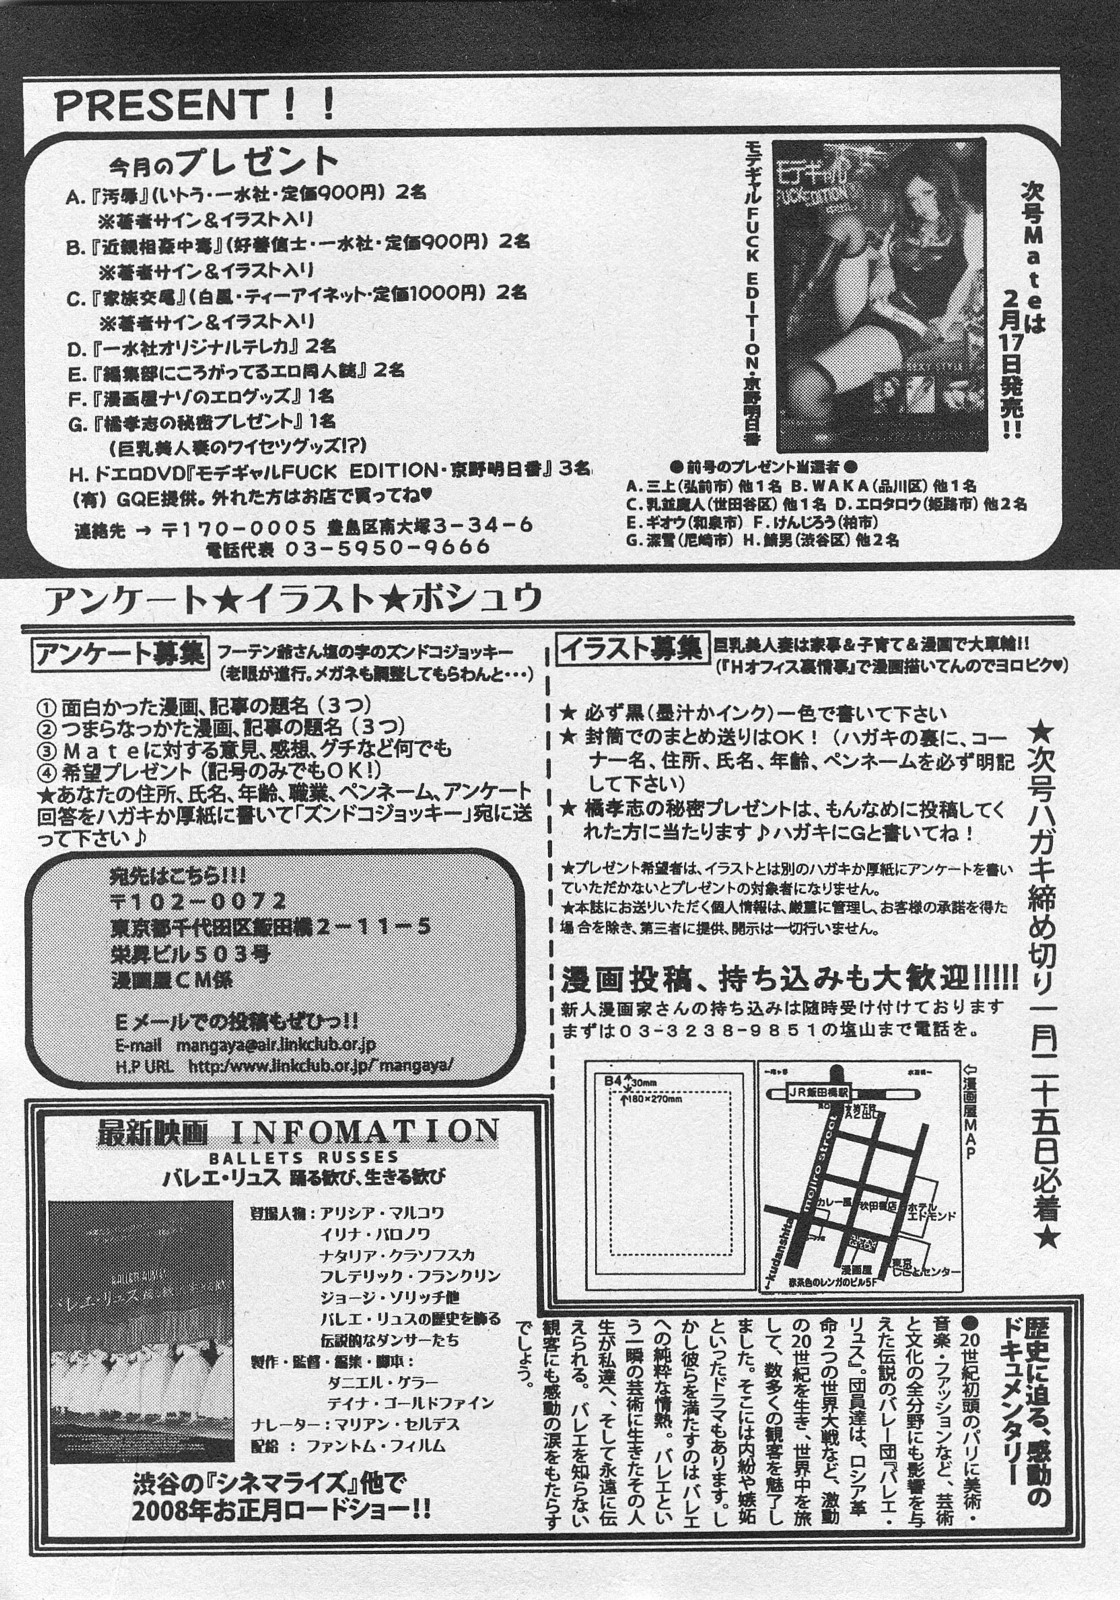 PRESENT!!
今月のプレゼント
A.『汚辱』(いトう・一水社・定価900円) 2名
※著者サイン&イラスト入り
B.『近親相姦中毒』(好善信士・一水社・定価900円) 2名
※著者サイン&イラスト入り
C.『家族交尾』(白風・ティーアイネット・定価1000円) 2名
※著者サイン&イラスト入り
D.『一水社オリジナルテレカ』2名
E.『編集部にころがってるエロ同人誌』2名
F.『漫画屋ナゾのエログッズ』1名
G.『橘孝志の秘密プレゼント』1名
(巨乳美人妻のワイセツグッズ!?)
H.ドエロDVD『モデギャルFUCK EDITION・京野明日香』3名
(有)GQE提供。外れた方はお店で買ってね♥
連絡先 → 〒170-0005 豊島区南大塚3-34-6
電話代表 03-5950-9666
モデギャルFUCK EDITION・京野明日香
モデギャル
FUCK EDITION
SEXY STYLE
次号Mateは
2月17日発売!!
●前号のプレゼント当選者●
A.三上(弘前市)他1名 B.WAKA(品川区)他1名
C.乳並魔人(世田谷区)他1名 D.エロタロウ(姫路市)他2名
E.ギオウ(和泉市) F.けんじろう(柏市)
G.深雪(尼崎市) H.鯖男(渋谷区)他2名
アンケート★イラスト★ボシュウ
アンケート募集
フーテン爺さん塩の字のズンドコジョッキー
(老眼が進行。メガネも調整してもらわんと・・・)
① 面白かった漫画、記事の題名(3つ)
② つまらなっかた漫画、記事の題名(3つ)
③ Mateに対する意見、感想、グチなど何でも
④ 希望プレゼント(記号のみでもOK!)
★あなたの住所、氏名、年齢、職業、ペンネーム、アンケート
回答をハガキか厚紙に書いて「ズンドコジョッキー」宛に送
って下さい♪
宛先はこちら!!!
〒102-0072
東京都千代田区飯田橋2-11-5
栄昇ビル503号
漫画屋CM係
Eメールでの投稿もぜひっ!!
E-mail mangaya@air.linkclub.or.jp
H.P URL http:/www.linkclub.or.jp/~mangaya/
イラスト募集
巨乳美人妻は家事&子育て&漫画で大車輪!!
(『Hオフィス裏情事』で漫画描いてんのでヨロピク♥)
★ 必ず黒(墨汁かインク)一色で書いて下さい
★ 封筒でのまとめ送りはOK!(ハガキの裏に、コー
ナー名、住所、氏名、年齢、ペンネームを必ず明記
して下さい)
★ 橘孝志の秘密プレゼントは、もんなめに投稿してく
れた方に当たります♪ハガキにGと書いてね!
★プレゼント希望者は、イラストとは別のハガキか厚紙にアンケートを書い
ていただかないとプレゼントの対象者になりません。
★本誌にお送りいただく個人情報は、厳重に管理し、お客様の承諾を得た
場合を除き、第三者に提供、開示は一切行いません。
漫画投稿、持ち込みも大歓迎!!!!!
新人漫画家さんの持ち込みは随時受け付けております
まずは03-3238-9851の塩山まで電話を。
★次号ハガキ締め切り一月二十五日必着★
B4
30mm
180×270mm
⇦漫画屋MAP
JR飯田橋駅
mejiro street
カレー屋
秋田書店
ホテル
エドモンド
漫画屋
東京
しごとセンター
←kudanshita
赤茶色のレンガのビル5F
最新映画 INFOMATION
BALLETS RUSSES
バレエ・リュス 踊る歓び、生きる歓び
BALLETS RUSSES
バレエ・リュス
登場人物:アリシア・マルコワ
イリナ・バロノワ
ナタリア・クラソフスカ
フレデリック・フランクリン
ジョージ・ゾリッチ他
バレエ・リュスの歴史を飾る
伝説的なダンサーたち
製作・監督・編集・脚本:
ダニエル・ゲラー
デイナ・ゴールドファイン
ナレーター:マリアン・セルデス
配給 : ファントム・フィルム
渋谷の『シネマライズ』他で
2008年お正月ロードショー!!
歴史に迫る、感動の
ドキュメンタリー
●20世紀初頭のパリに美術・
音楽・ファッションなど、芸術
と文化の全分野にも影響を与
えた伝説のバレー団『バレエ・
リュス』。団員達は、ロシア革
命2つの世界大戦など、激動
の20世紀を生き、世界中を旅
して、数多くの観客を魅了し
ました。そこには内紛や嫉妬
といったドラマもあります。し
かし彼らを満たすのはバレエ
への純粋な情熱。バレエとい
う一瞬の芸術に生きたその人
生が私達へ、そして永遠に伝
えられる。バレエを知らない
観客にも感動の涙をもたらす
でしょう。